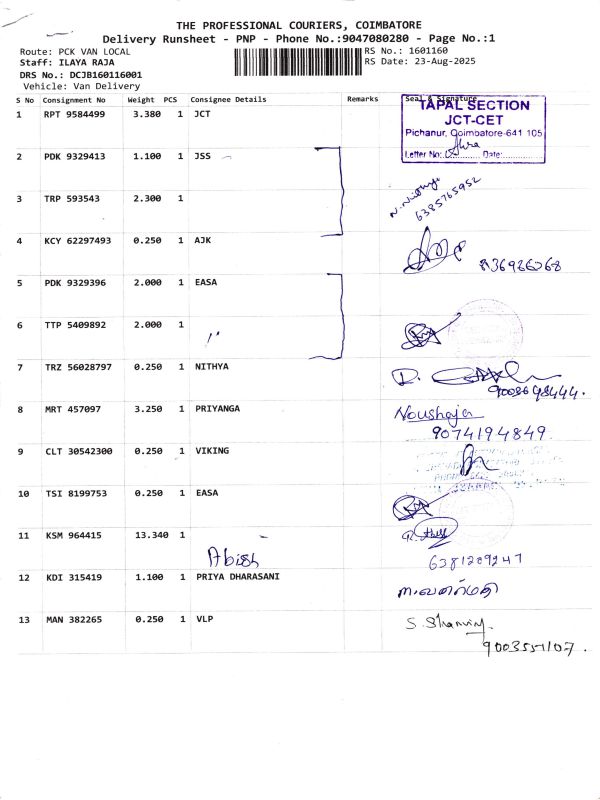 THE PROFESSIONAL COURIERS, COIMBATORE
Delivery Runsheet - PNP - Phone No.:9047080280 - Page No.:1
Route: PCK VAN LOCAL RS No.: 1601160
Staff: ILAYA RAJA RS Date: 23-Aug-2025
DRS No.: DCJB160116001
Vehicle: Van Delivery
S No Consignment No Weight PCS Consignee Details Remarks Seal & Signature
1 RPT 9584499 3.380 1 JCT
TAPAL SECTION
JCT-CET
Pichanur, Coimbatore-641 105
Letter No: Date:
2 PDK 9329413 1.100 1 JSS
3 TRP 593543 2.300 1
6385765952
4 KCY 62297493 0.250 1 AJK
836926068
5 PDK 9329396 2.000 1 EASA
6 TTP 5409892 2.000 1
7 TRZ 56028797 0.250 1 NITHYA
9008698444.
8 MRT 457097 3.250 1 PRIYANGA Noushaja
9074194849.
9 CLT 30542300 0.250 1 VIKING
10 TSI 8199753 0.250 1 EASA
11 KSM 964415 13.340 1
Abish 6381209247
12 KDI 315419 1.100 1 PRIYA DHARASANI
13 MAN 382265 0.250 1 VLP
9003551107.